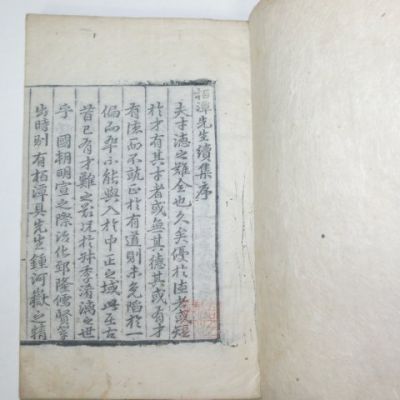 栢潭先生續集序
夫才德之難全也久矣優於德者或短
於才有其才者或無其德其或有才
有德而不就正於有道則未免陷於一
偏而卒不能與入於中正之域此古
昔已有才難之若况於叔季淆漓之世
乎 國朝明宣之際治化郅隆儒賢輩
出時則有栢潭具先生鍾河嶽之精